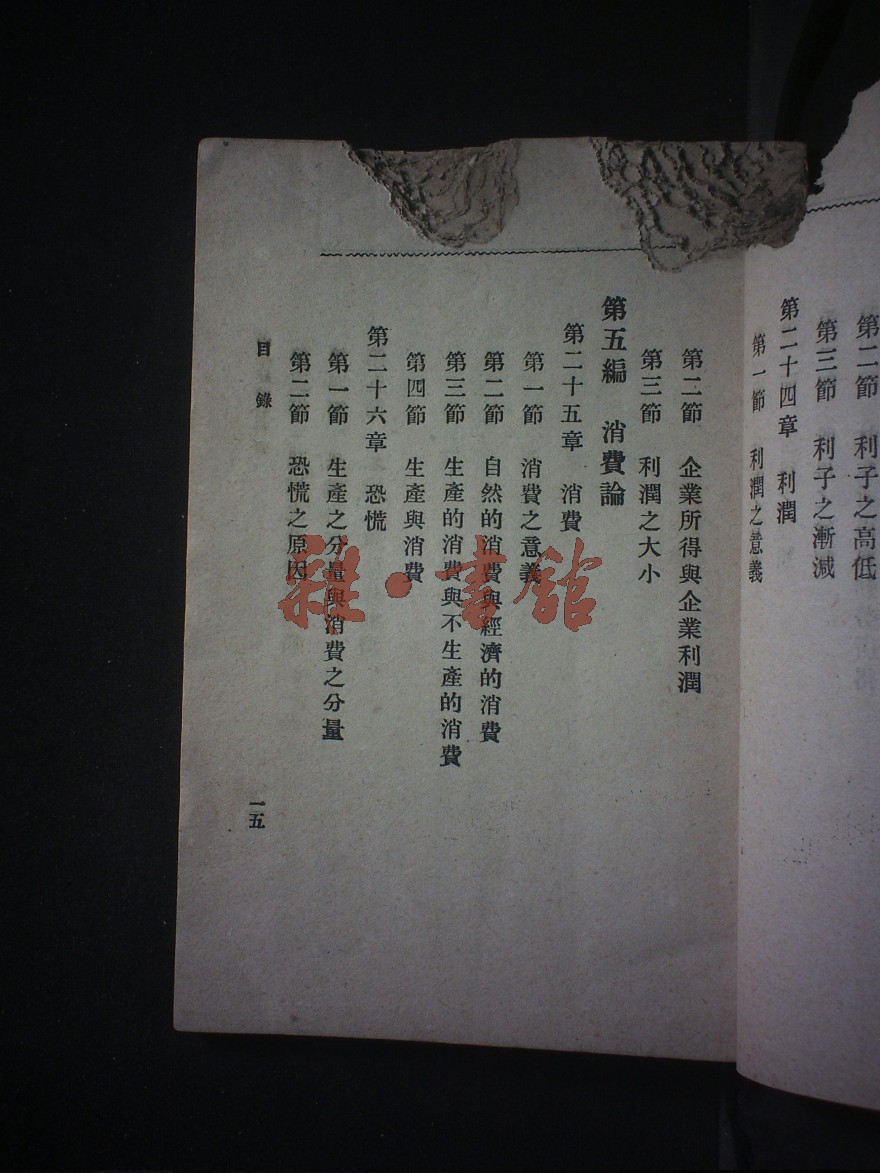 第二節　利子之高低
第三節　利子之漸減
第二十四章　利潤
第一節　利潤之意義
第二節　企業所得與企業利潤
第三節　利潤之大小
第五編　消費論
第二十五章　消費
第一節　消費之意義
第二節　自然的消費與經濟的消費
第三節　生產的消費與不生產的消費
第四節　生產與消費
第二十六章　恐慌
第一節　生產之分量與消費之分量
第二節　恐慌之原因
目錄
一五
雜·書館